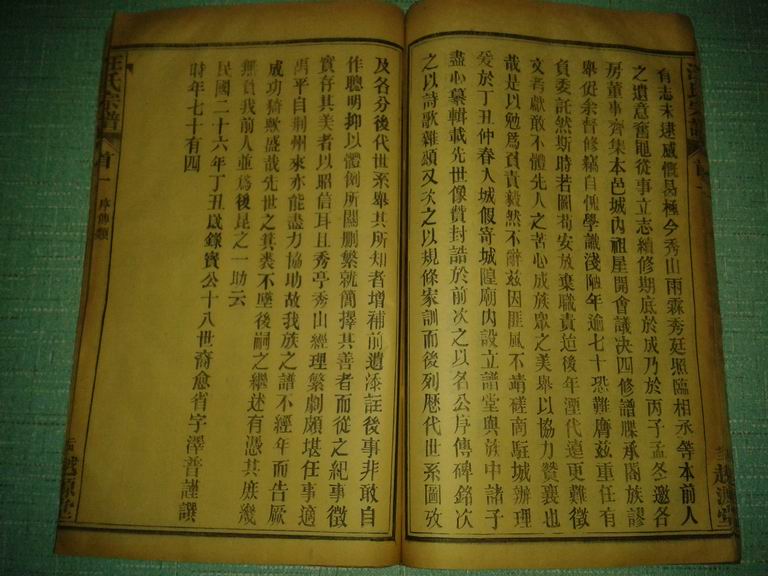 有志未逮感慨曷極今秀山雨霖秀廷照臨相丞等本前人
之遺意奮起從事立志續修期底於成乃於丙子孟冬邀各
房董事齊集本邑城內祖星開會議決四修譜牒承閤族謬
舉促余督修竊自愧學識淺陋年逾七十恐難膺茲重任有
負委託然斯時若圖苟安放棄職責迨後年湮代遠更難徵
文考獻敢不體先人之苦心成族眾之美舉以協力贊襄也
哉是以勉為負責毅然不辭茲因匪風不靖磋商駐城辦理
爰於丁丑仲春入城假寄城隍廟內設立譜堂與族中諸子
盡心纂輯載先世像贊封誥於前次之以名公序傳碑銘次
之以詩歌雜頌又次之以規條家訓而後列歷代世系圖攷
及名分後代世系舉其所知者增補前遺添註後事非敢自
作聰明抑以體例所關刪繁就簡擇其善者而從之紀事徵
實存其美者以昭信耳且秀亭秀山經理繁劇頗堪任事適
禹平自荊州來亦能盡力協助故我族之譜不經年而告厥
成功猗歟盛哉先世之箕裘不墜後嗣之繼述有憑其庶幾
無負我前人並為後昆之一助云
民國二十六年丁丑歲錄寶公十八世裔愈省字澤普謹撰
時年七十有四
汪氏宗譜
首一
序傳類